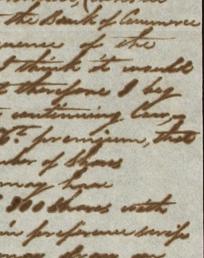 the Bank of Commerce
of the
I think it would
therefore I beg
continuing
premium, that
of Shares
may have
800 Shares with
preference scrip